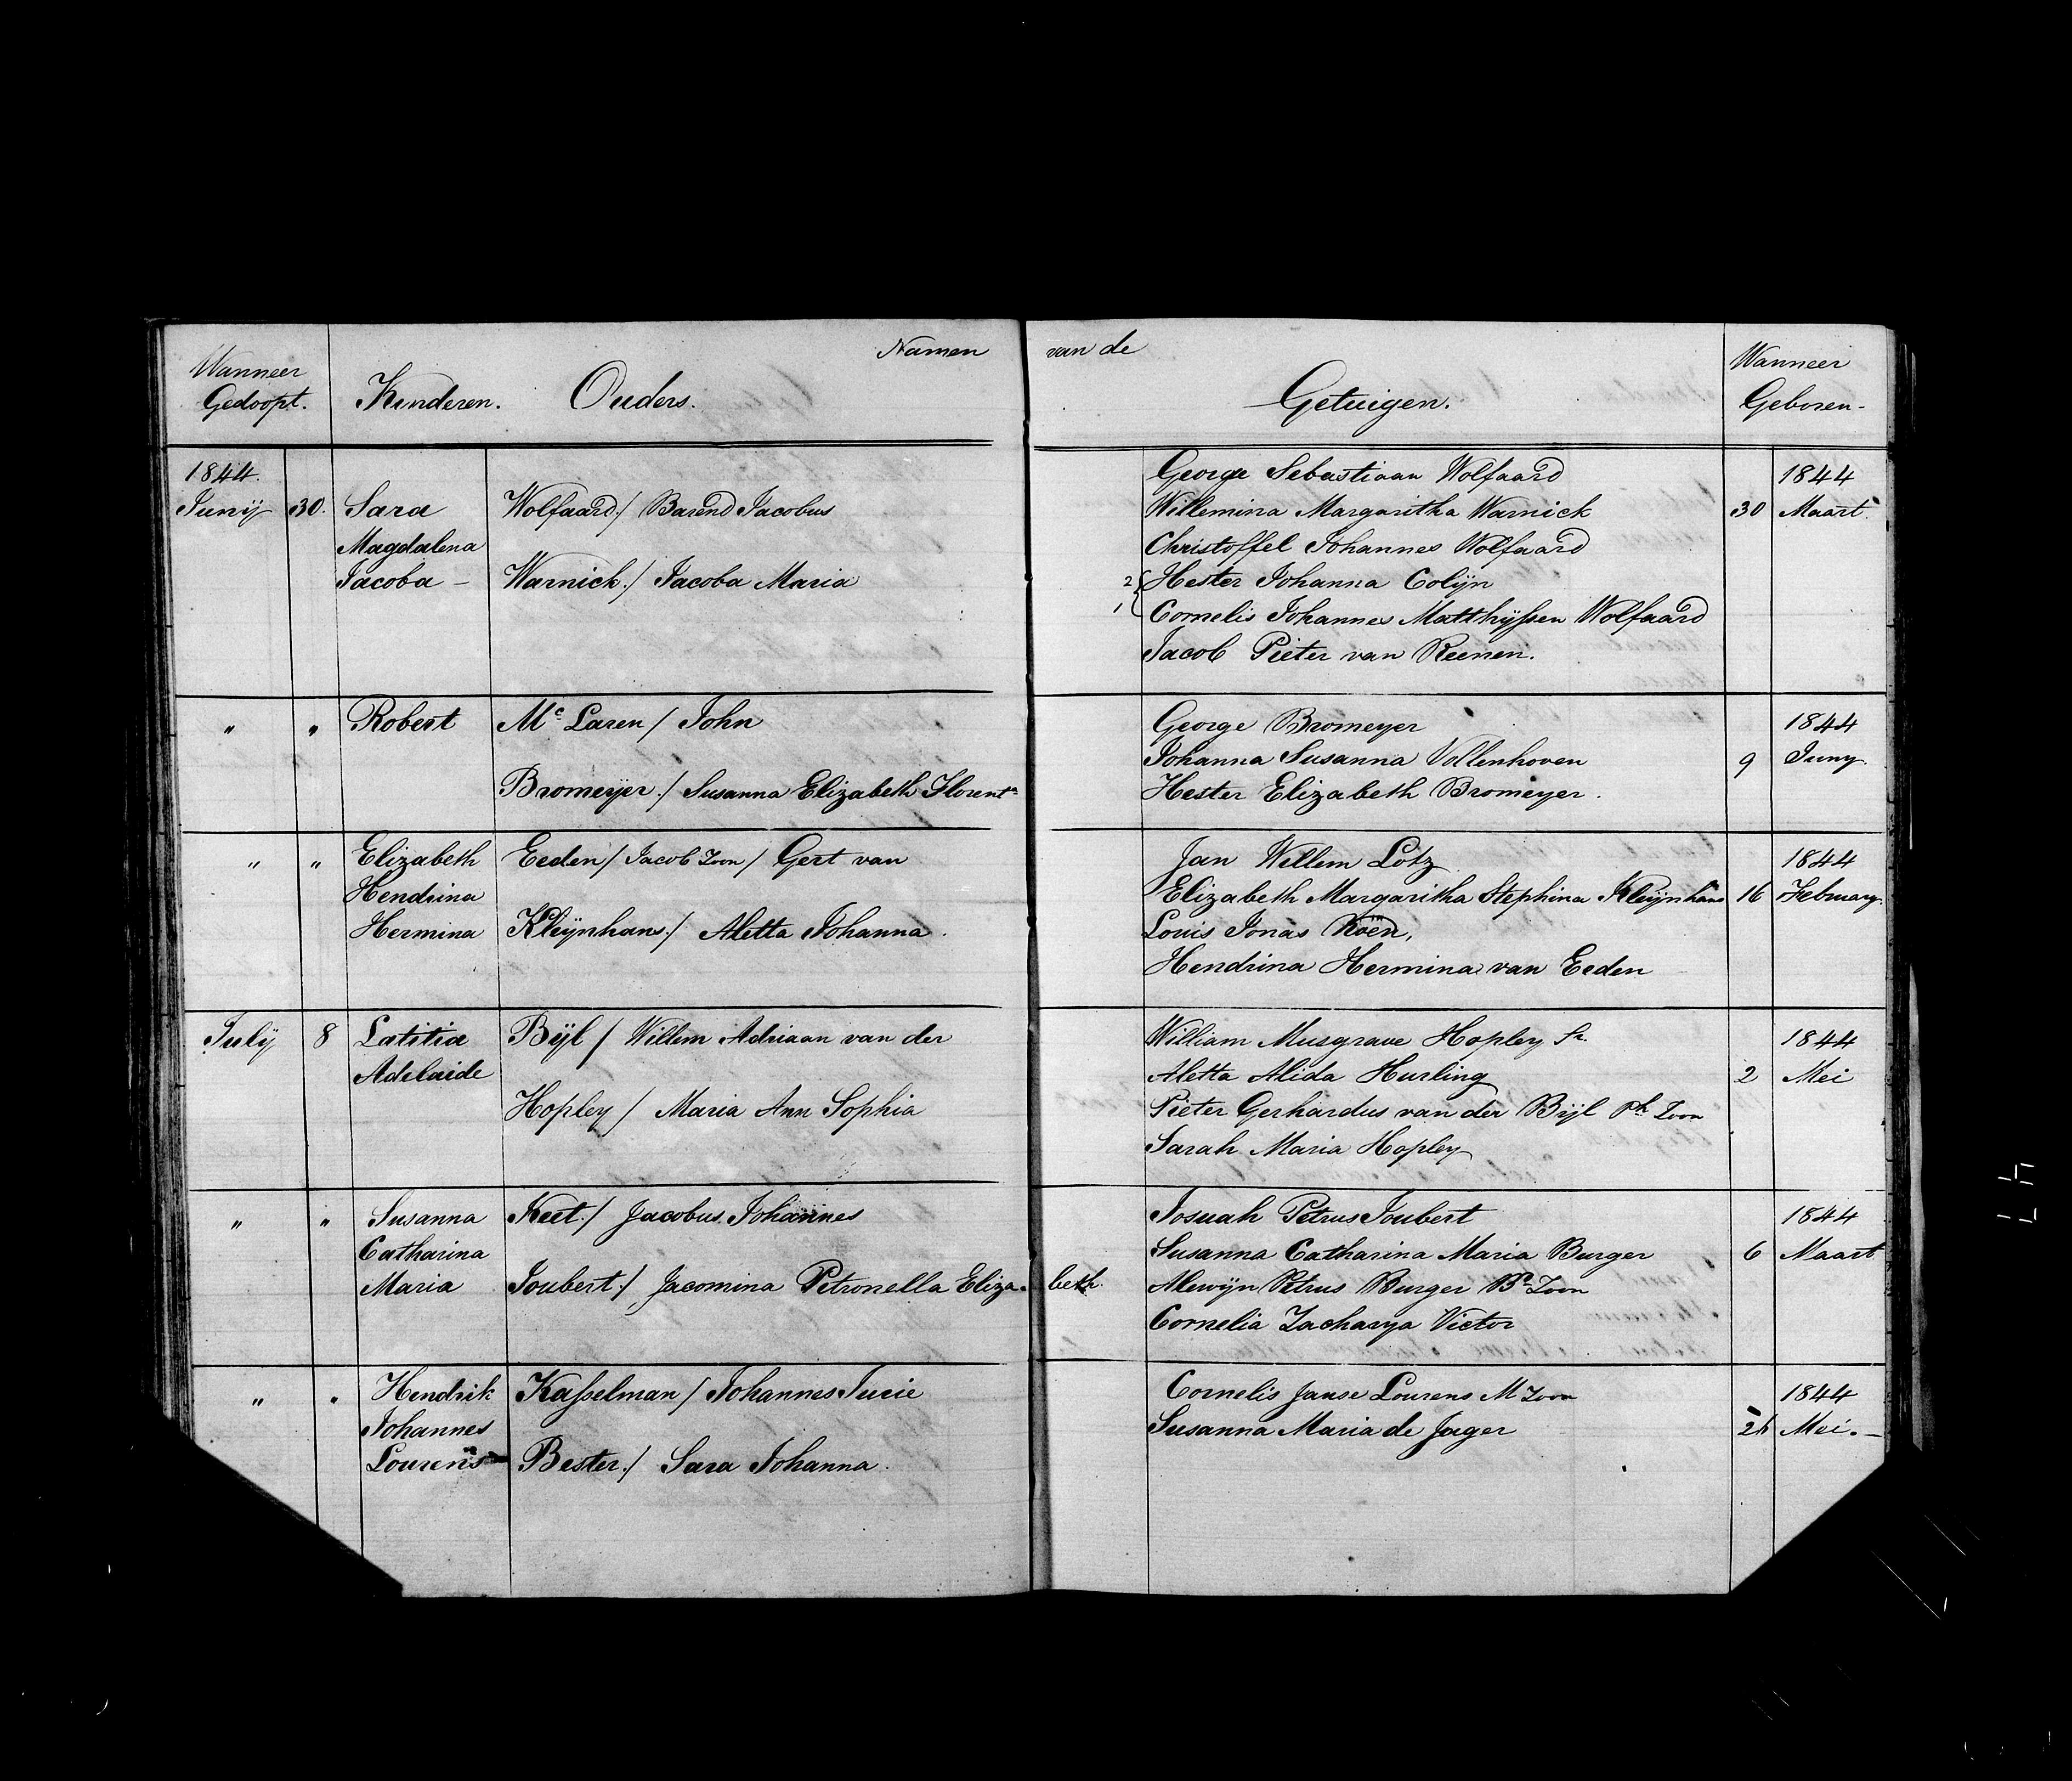 Namen van de
Wanneer Gedoopt. Kinderen. Ouders. Getuigen. Wanneer Geboren-
1844.
Junij 30. Sara Magdalena Jacoba –
Wolfaard./ Barend Jacobus
Warnick./ Jacoba Maria
George Sebastiaan Wolfaard
Willemina Margaritha Warnick
Christoffel Johannes Wolfaard
2 Hester Johanna Colijn
1 Cornelis Johannes Matthyssen Wolfaard
Jacob Pieter van Reenen.
1844
30 Maart.
" " Robert
Mc Laren / John
Bromeyer./ Susanna Elizabeth Florenta
George Bromeyer
Johanna Susanna Vollenhoven
Hester Elizabeth Bromeyer.
1844
9 Juny
" " Elizabeth Hendrina Hermina
Eeden / Jacob Zoon / Gert van
Kleijnhans./ Aletta Johanna.
Jan Willem Lotz
Elizabeth Margaritha Stephina Kleijnhans
Louis Jonas Koën,
Hendrina Hermina van Eeden
1844
16 February.
Julij 8 Latitia Adelaide
Bijl / Willem Adriaan van der
Hopley / Maria Ann Sophia
William Musgrave Hopley Sr.
Aletta Alida Hurling
Pieter Gerhardus van der Bijl Ph Zoon
Sarah Maria Hopley
1844
2 Mei
" " Susanna Catharina Maria
Keet./ Jacobus Johannes
Joubert./ Jacomina Petronella Eliza- beth.
Josuah Petrus Joubert
Susanna Catharina Maria Burger
Alewijn Petrus Burger Bn Zoon
Cornelia Zacharya Victor
1844
6 Maart
" " Hendrik Johannes Lourens
Kasselman / Johannes Jurie
Bester./ Sara Johanna.
Cornelis Janse Lourens M Zoon
Susanna Maria de Jager
1844
Mei. –
47